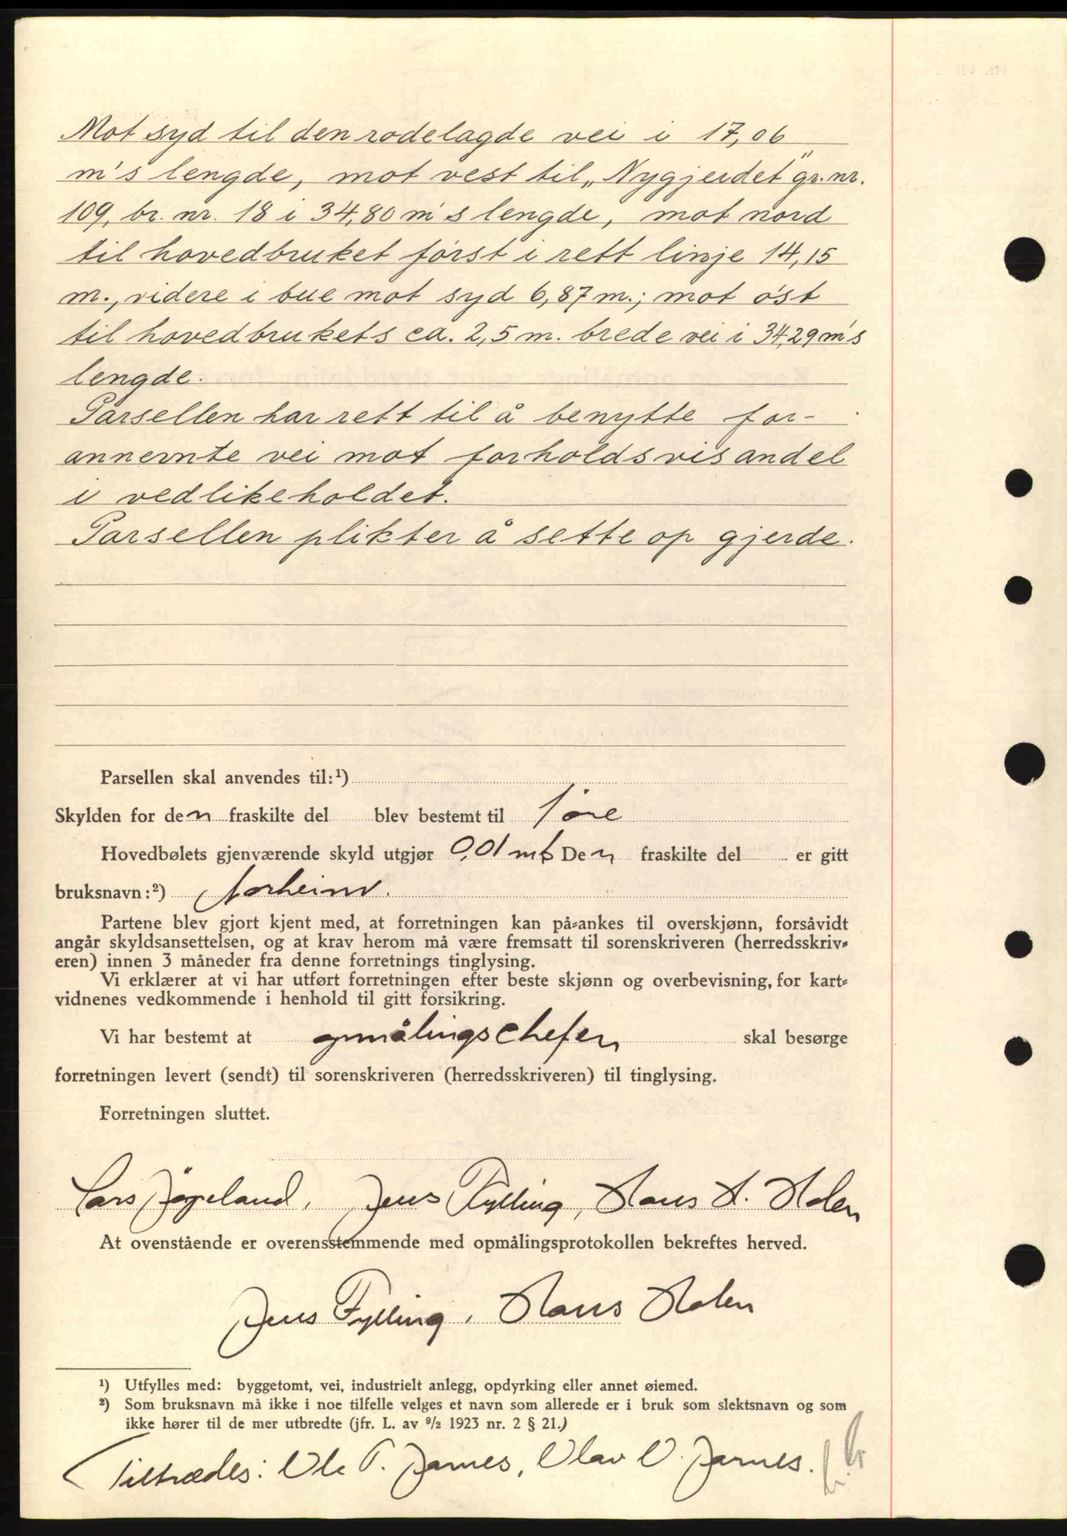 Mot syd til den rodelagde vei i 17,06
m's lengde, mot vest til „Nygjerdet" gr. nr.
109, br. nr. 18 i 34,80 m's lengde, mot nord
til hovedbruket først i rett linje 14,15
m., videre i bue mot syd 6,87 m.; mot øst
til hovedbrukets ca. 2,5 m. brede vei i 34,29 m's
lengde.
Parsellen har rett til å benytte for-
annemnte vei mot forholdsvis andel
i vedlikeholdet.
Parsellen plikter å sette op gjerde.
Parsellen skal anvendes til:¹)
Skylden for den fraskilte del blev bestemt til 1 øre
Hovedbølets gjenværende skyld utgjør 0,01 mk Den fraskilte del er gitt
bruksnavn:²) Norheim.
Partene blev gjort kjent med, at forretningen kan på-ankes til overskjønn, forsåvidt
angår skyldsansettelsen, og at krav herom må være fremsatt til sorenskriveren (herredsskriv-
eren) innen 3 måneder fra denne forretnings tinglysing.
Vi erklærer at vi har utført forretningen efter beste skjønn og overbevisning, for kart-
vidnenes vedkommende i henhold til gitt forsikring.
Vi har bestemt at opmålingschefen skal besørge
forretningen levert (sendt) til sorenskriveren (herredsskriveren) til tinglysing.
Forretningen sluttet.
Lars Jøgeland, Jens Fylling, Hans H. Holen
At ovenstående er overensstemmende med opmålingsprotokollen bekreftes herved.
Jens Fylling, Hans Holen
¹) Utfylles med: byggetomt, vei, industrielt anlegg, opdyrking eller annet øiemed.
²) Som bruksnavn må ikke i noe tilfelle velges et navn som allerede er i bruk som slektsnavn og som
ikke hører til de mer utbredte (jfr. L. av 9/2 1923 nr. 2 § 21.)
Tiltrædes: Ole T. Jarnes, Olav O. Jarnes.